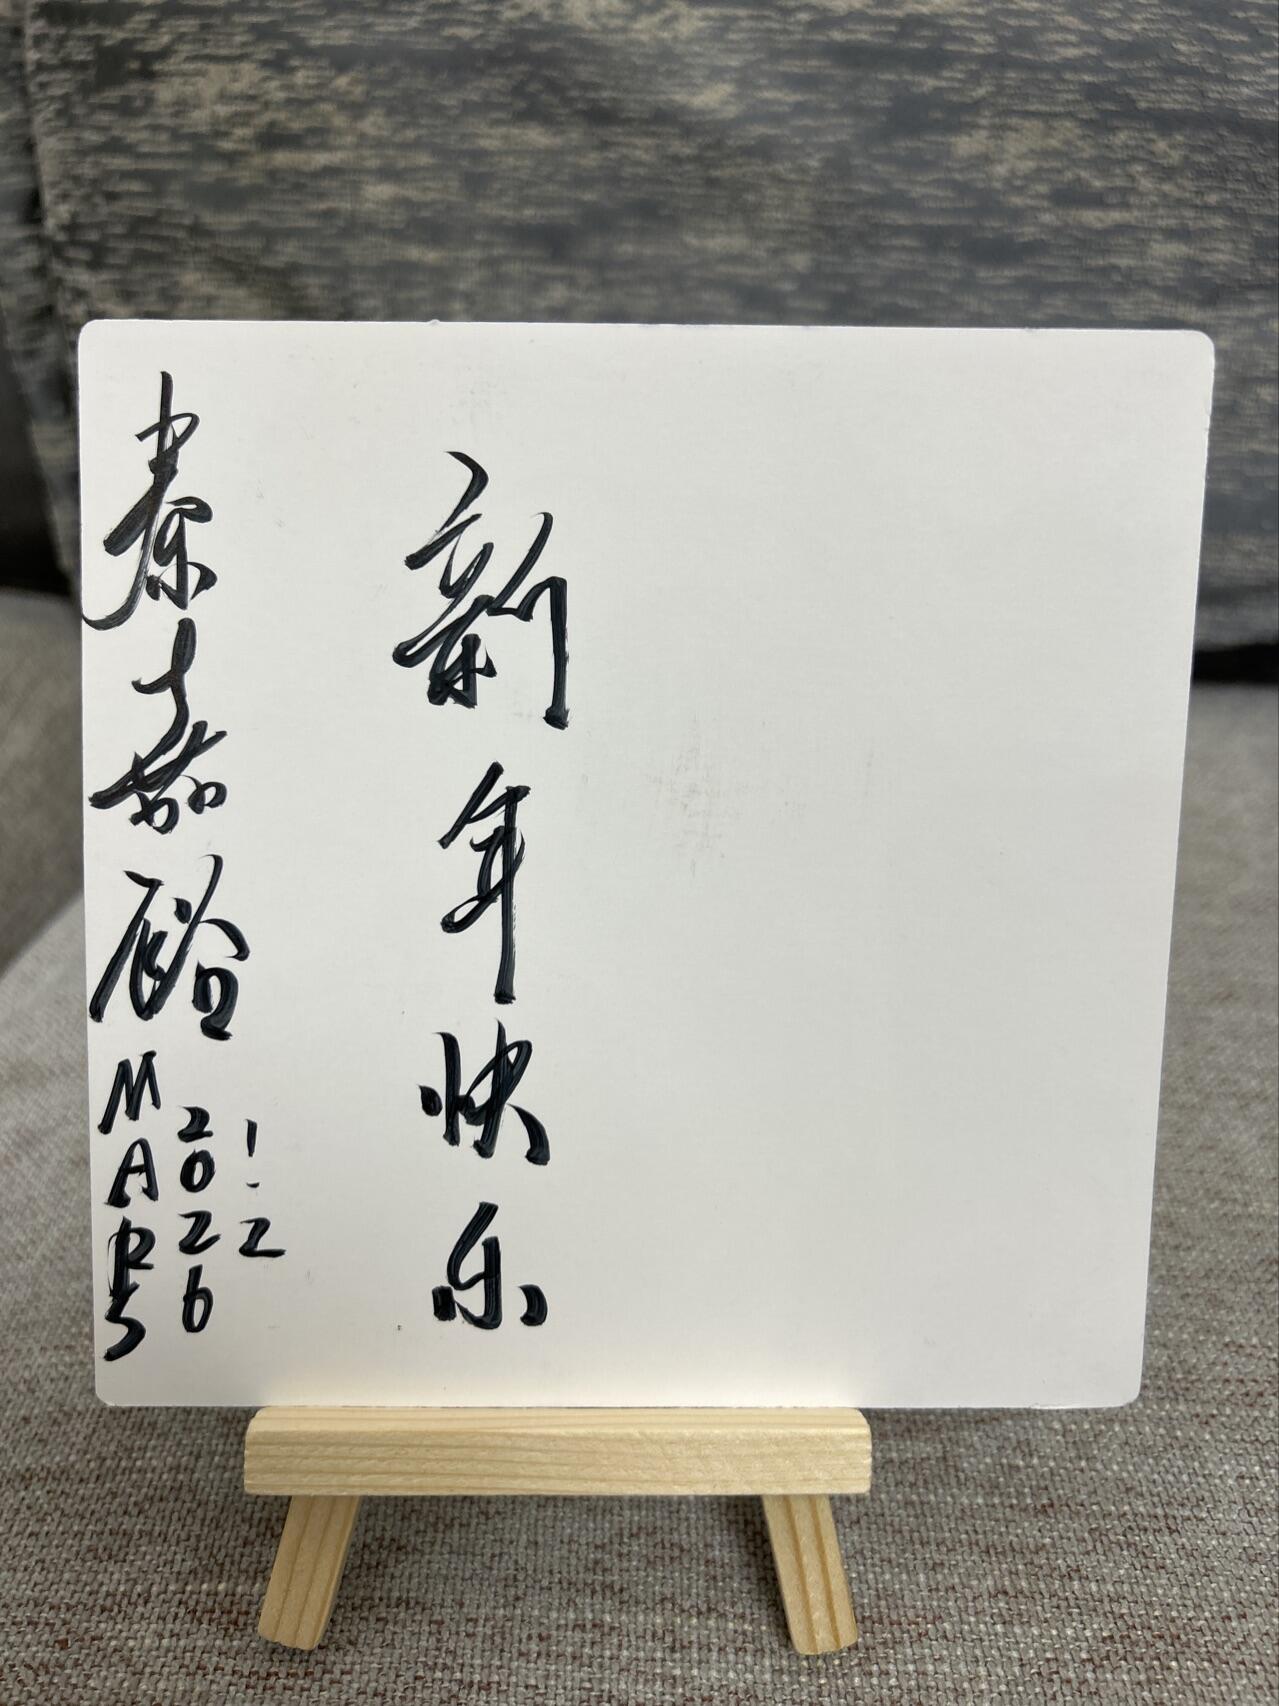 新年快乐
秦嘉
MARS
2026
1.2